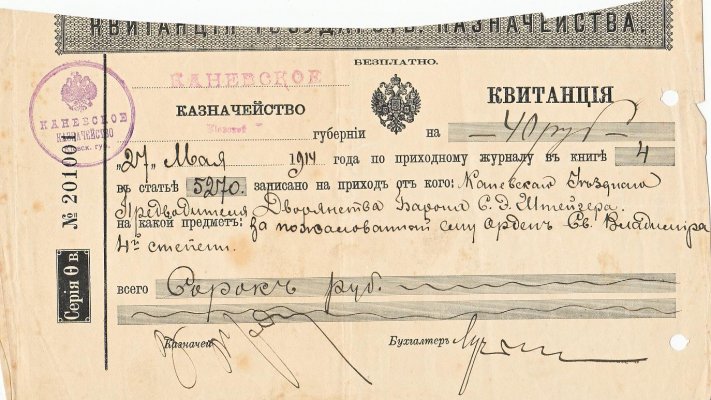 КВИТАНЦІЯ ГОСУДАРСТ. КАЗНАЧЕЙСТВА.
БЕЗПЛАТНО.
КАНЕВСКОЕ
КАЗНАЧЕЙСТВО
КВИТАНЦІЯ
Кіевской губерніи на — 40 руб —
„27„ Мая 1914 года по приходному журналу въ книгѣ 4
въ статьѣ 5270. записано на приходъ отъ кого: Каневскаго Уѣзднаго
Предводителя Дворянства Барона С. Э. Штейгера.
на какой предметъ: За пожалованный ему Орденъ Св. Владиміра
4й степени.
всего Сорокъ руб.
Казначей
Бухгалтеръ
КАНЕВСКОЕ
КАЗНАЧЕЙСТВО
№ 201001
Серія Ѳ в.